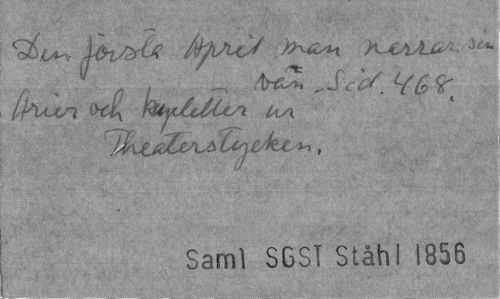 Den första April man narrar sin
vän. Sid. 468.
Arier och kupletter ur
Theaterstycken.
Saml SGST Ståhl 1856